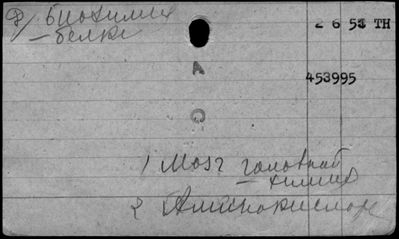 Ф/ Биохимия
— белки
2 6 53 TH
A
453995
G
1 Мозг головной
— химия
2 Аминокислоты